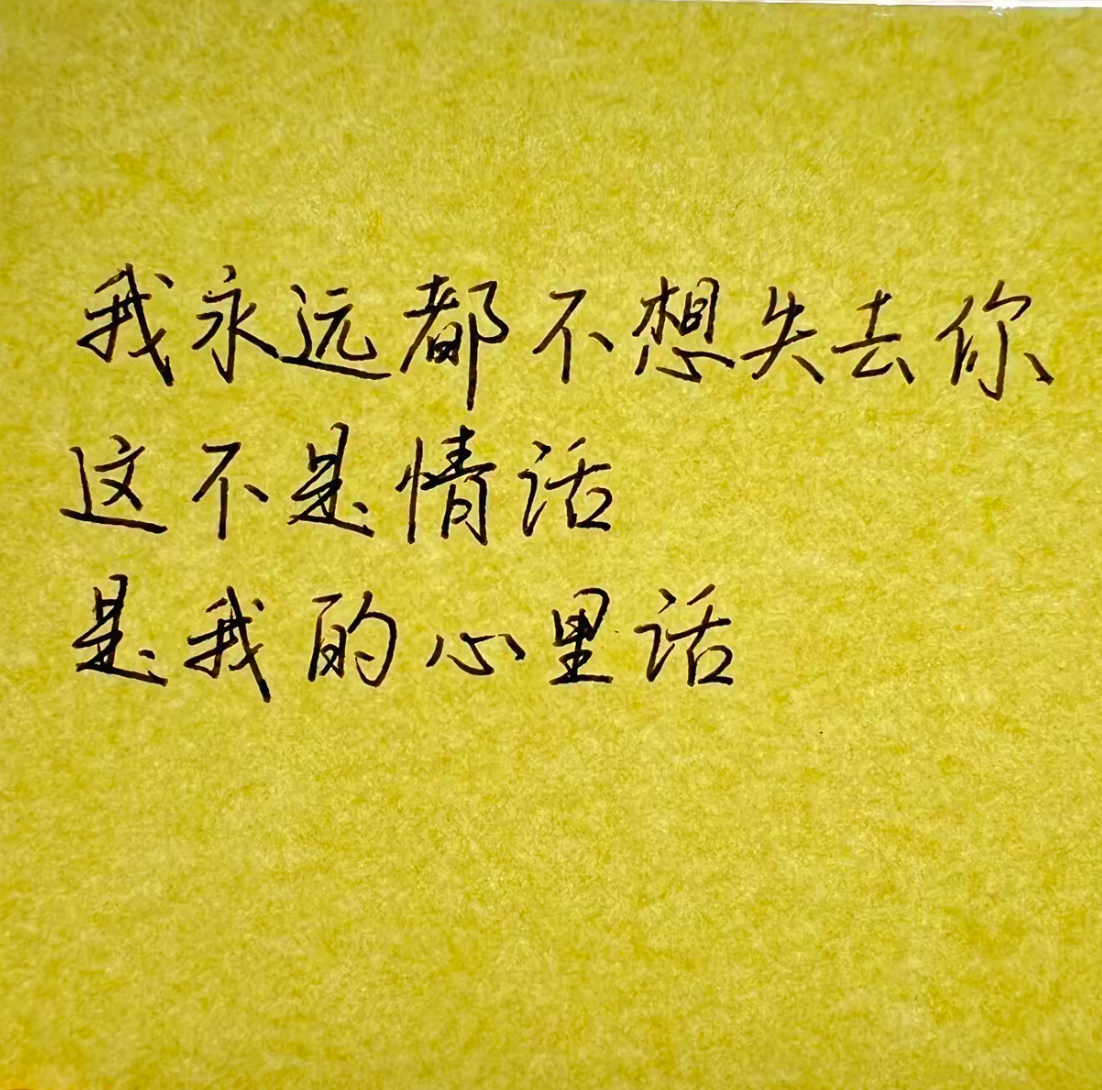 我永远都不想失去你
这不是情话
是我的心里话